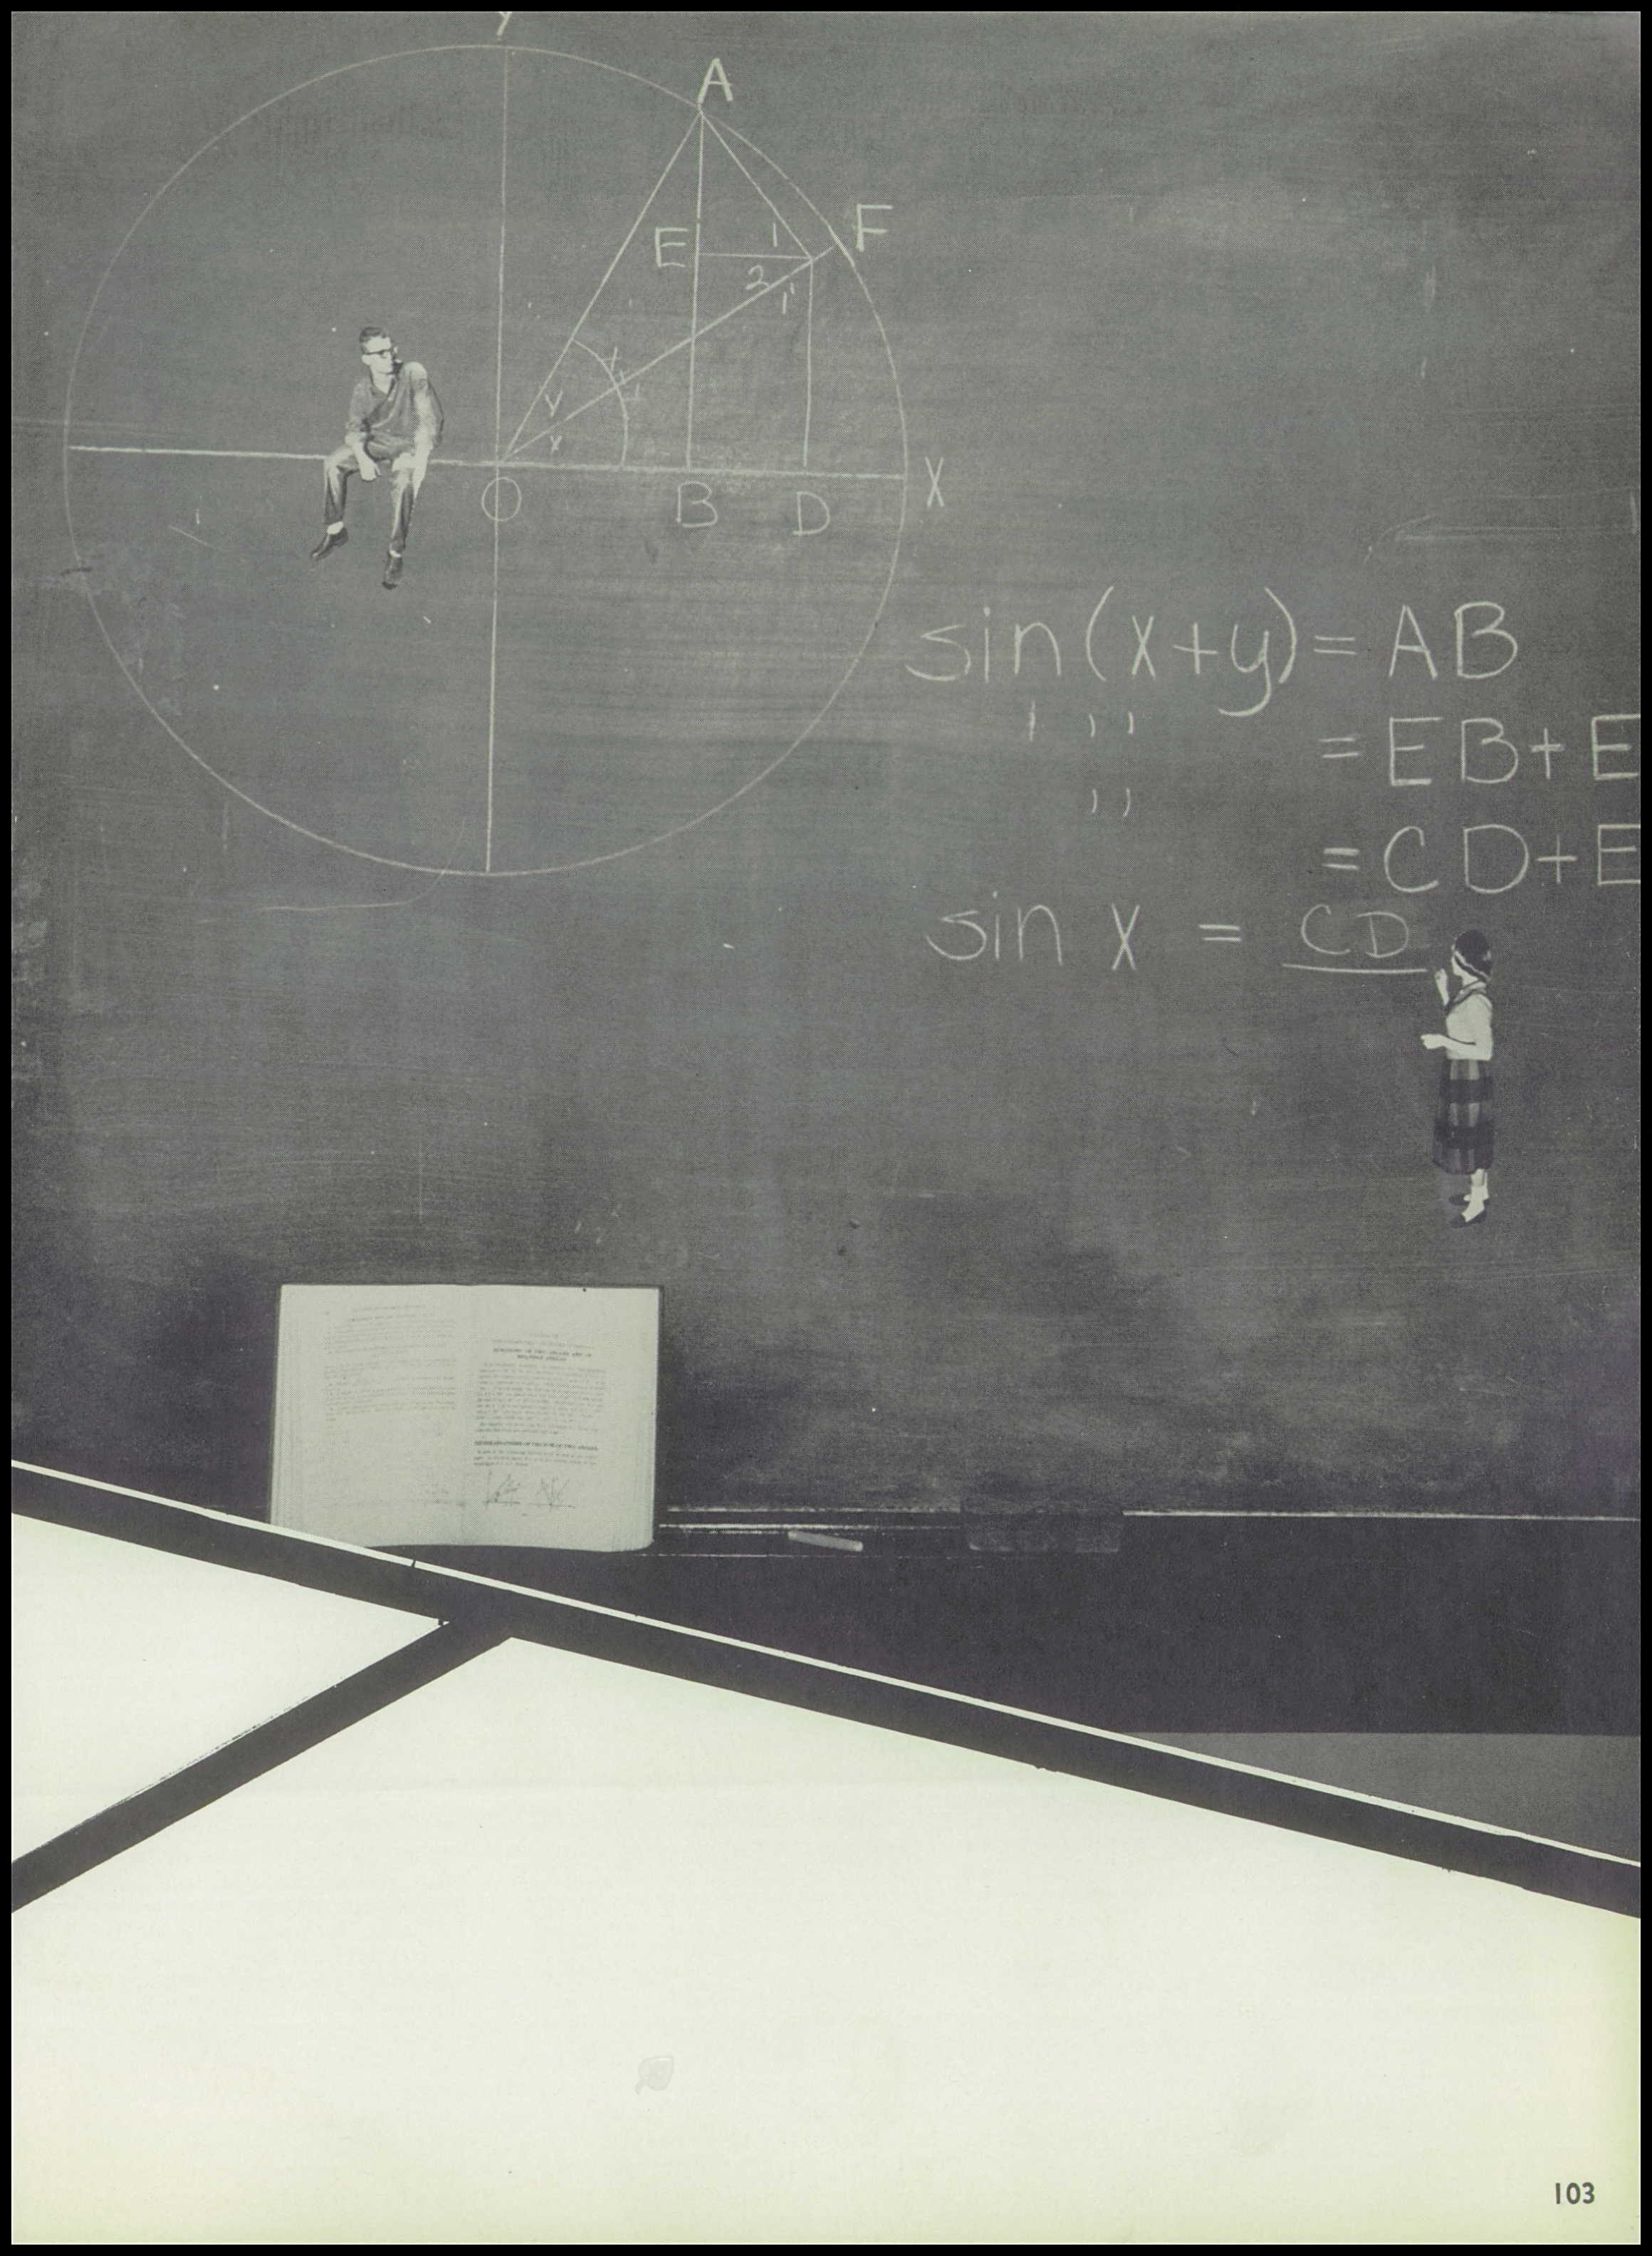 Y
A
F
E
1
2
1
y
x
O
B
D
X
sin (x+y) = AB
" = EB+E
" = CD+E
sin x = CD
103